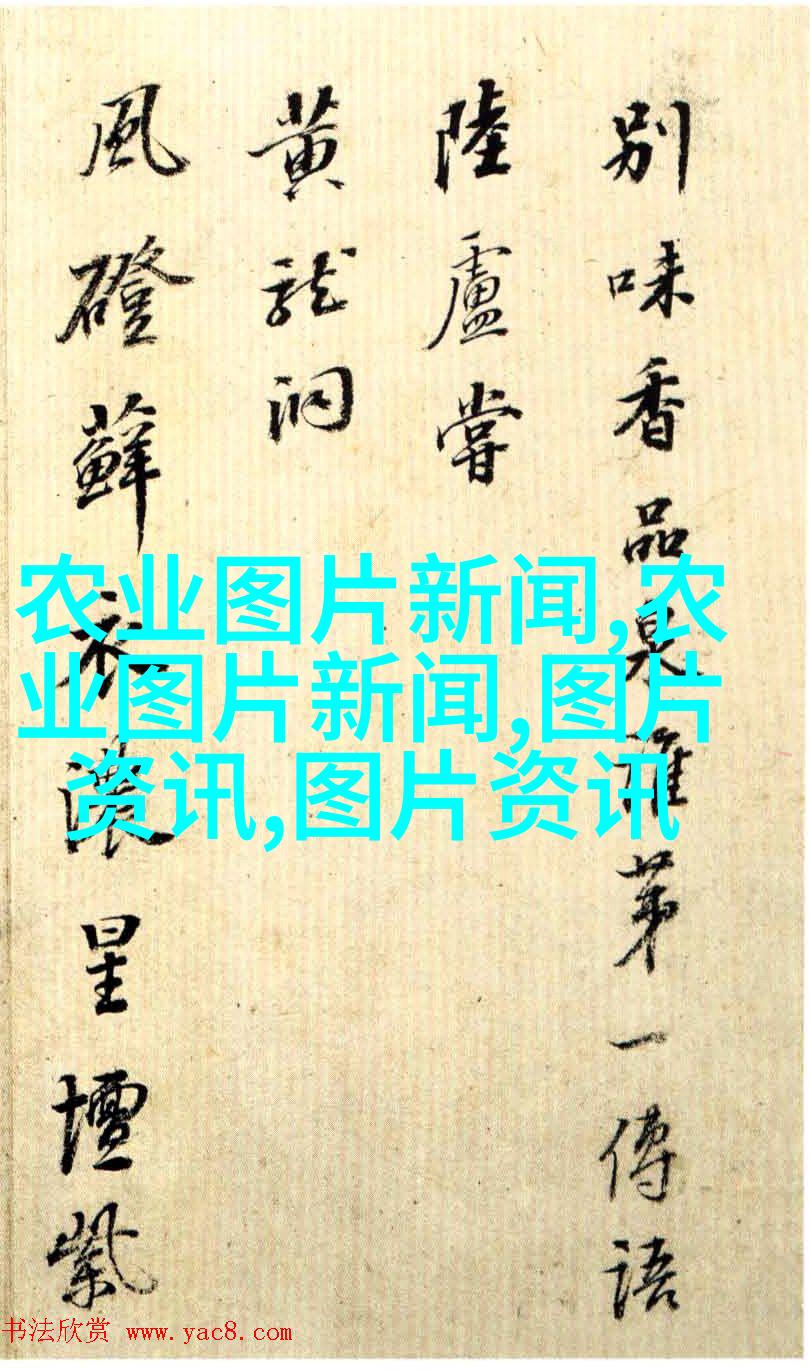 別味香品泉誰苐一傳語
陸盧嘗
黃龍洞
風磴蘚濃星壇紫
农业图片新闻,农
业图片新闻,图片
资讯,图片资讯
书法欣赏 www.yac8.com